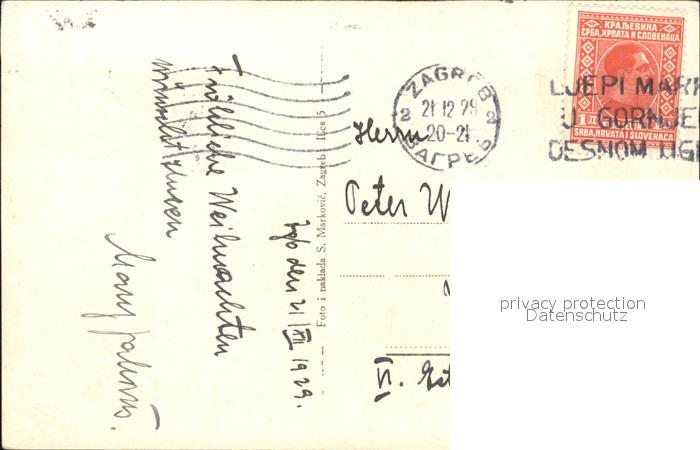 Fröhliche Weihnachten
wünscht Ihnen
Zgb den 21/XII 1929.
Foto i naklada S. Marković, Zagreb Ilica 5
ZAGREB
21 12 29
2 2
20-21
ЗАГРЕБ
КРАЉЕВИНА
СРБА, ХРВАТА И СЛОВЕНАЦА
1
SRBA, HRVATA I SLOVENACA
LJEPI MARK
U GORNJEM
DESNOM UGL
Herrn
Peter W
II.
privacy protection
Datenschutz